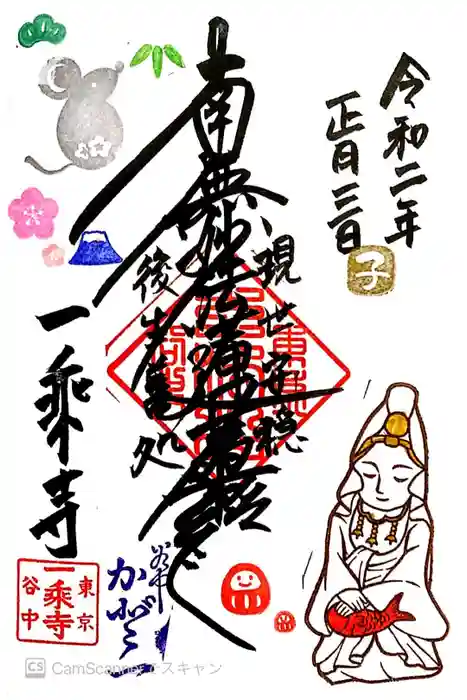 令和二年
正月三日
子
南無妙法蓮華経
現世安穏
後生善処
一乗寺
東京
一乗寺
谷中
谷中
CS CamScannerでスキャン